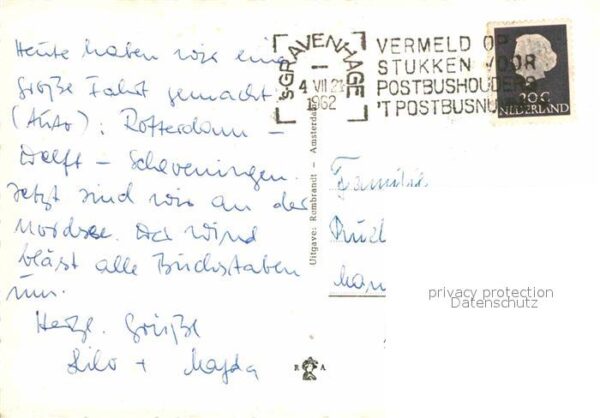 Heute haben wir eine
große Fahrt gemacht
(Auto): Rotterdam –
Delft – Scheveningen.
Jetzt sind wir an der
Nordsee. Der Wind
bläst alle Buchstaben
um.
Herzl. Grüße
Lilo + Magda
'S-GRAVENHAGE
4 VII 21
1962
VERMELD OP
STUKKEN VOOR
POSTBUSHOUDERS
'T POSTBUSNUM
20c
NEDERLAND
Uitgave: Rembrandt - Amsterdam
Familie
R A
privacy protection
Datenschutz